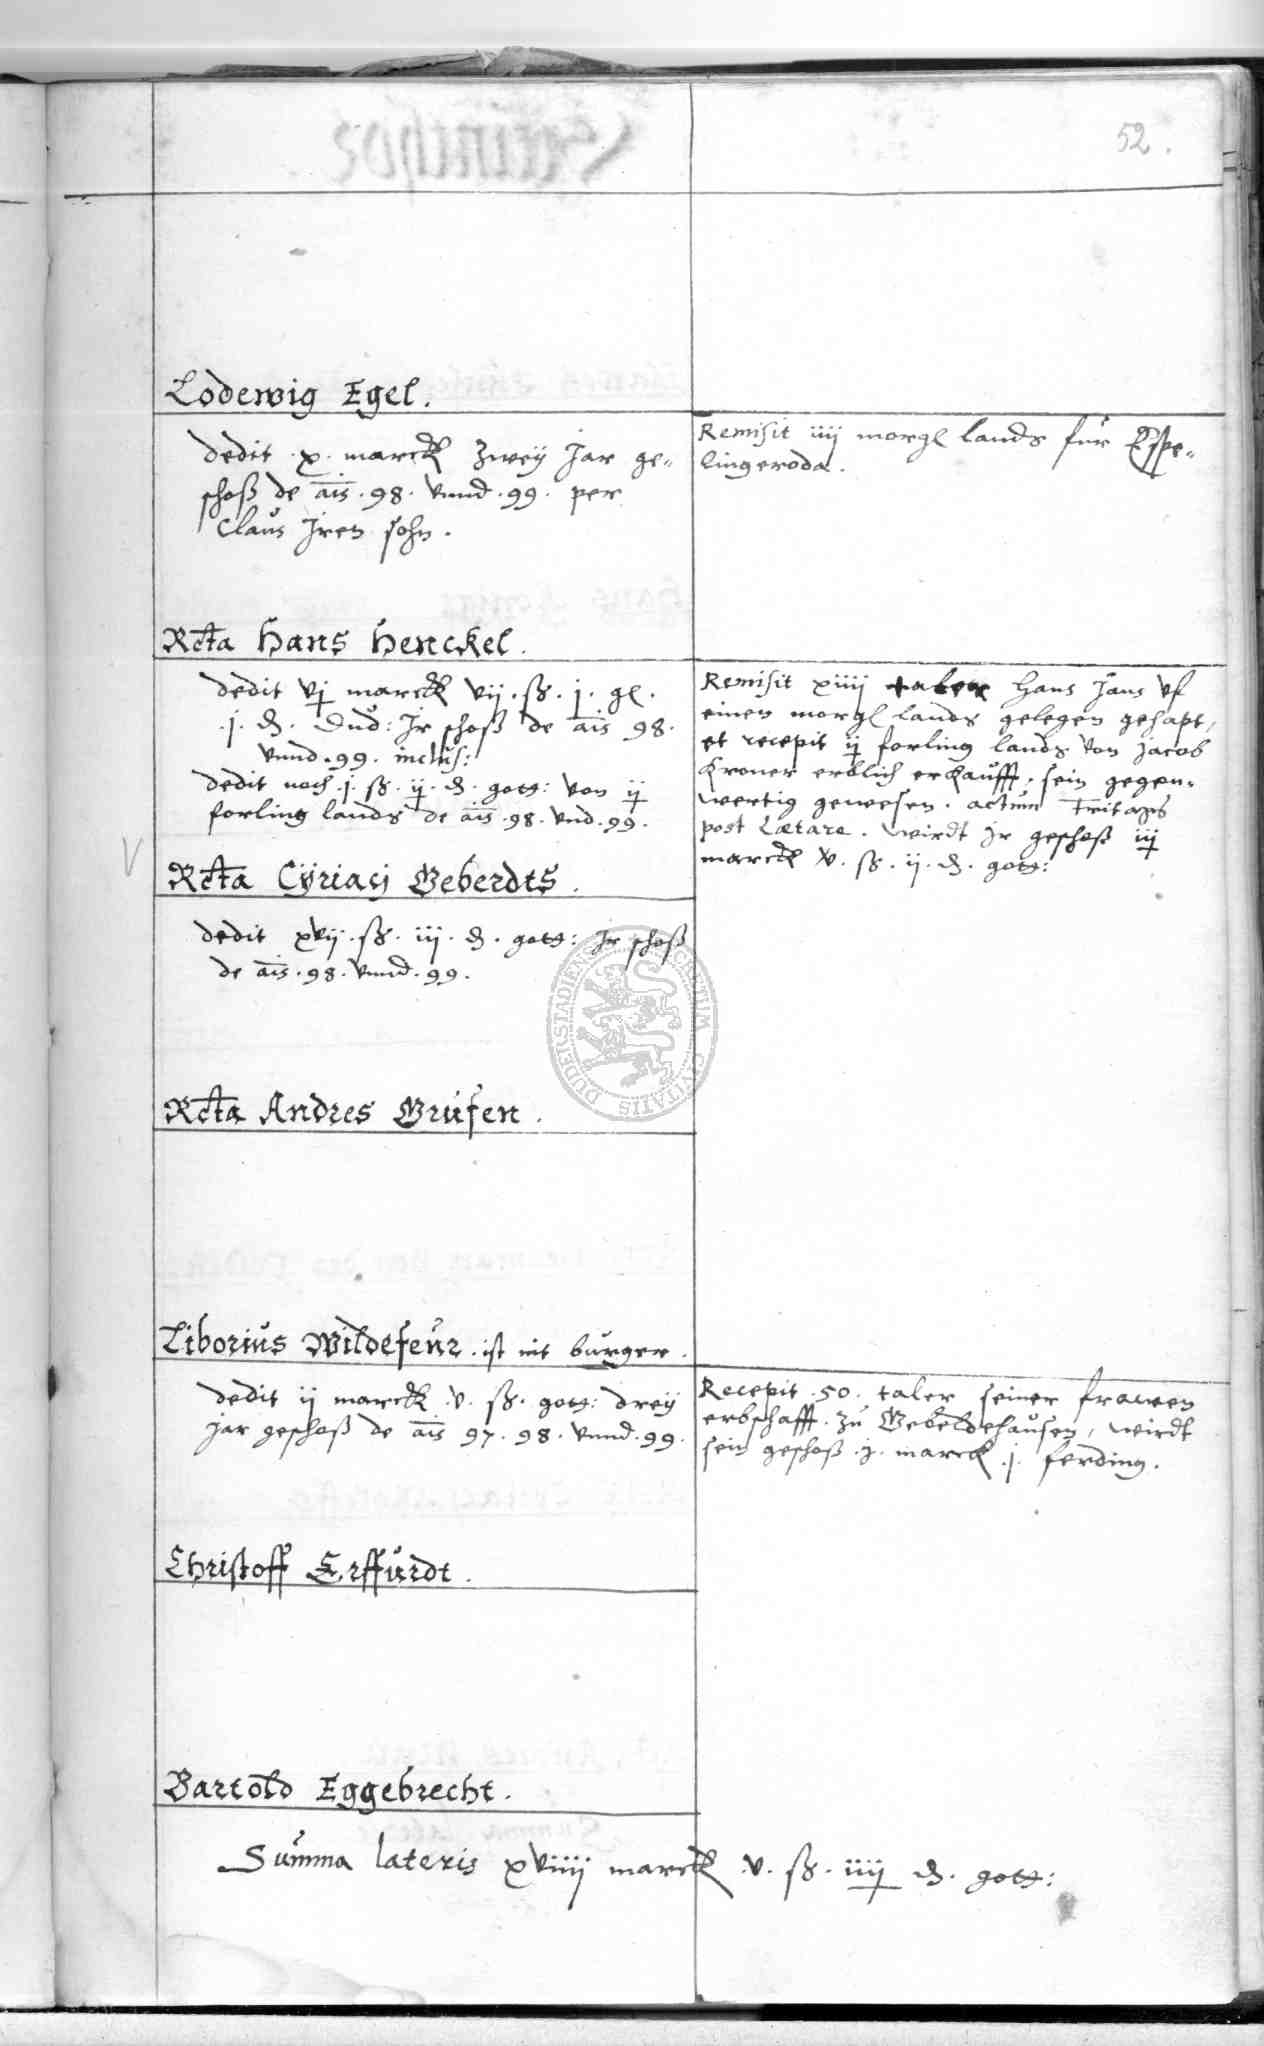 52.
Lodewig Egel.
dedit .x. marck zweÿ Jar ge-
schoß de ais .98. vnnd .99. per
Claus Jren sohn.
Remisit iiij morgl lands fur Espe-
lingeroda.
Rcta Hans Henckel.
dedit vj marck vij. ß. j. gl.
.j. d. Dud: Jr schoß de ais 98.
vnnd .99. inclus:
dedit noch .j. ß. ij. d. gott: von ij
forling lands de ais .98. vnd .99.
Remisit xiiij taler Hans Jans vf
einen morgl lands gelegen gehapt,
et recepit ij forling lands von Jacob
Kroner erblich erkaufft. sein gegen-
wertig gewesen. actum
post Lætare. wirdt Jr geschoß iij
marck v. ß. ij. d. gott:
V
Rcta Cÿriacj Geberdts.
dedit xvij. ß. iij. d. gott: Jr schoß
de ais .98. vnnd .99.
DUDERSTADIENSIS SECRETUM CIVITATIS
Rcta Andres Grufen.
Liborius Wildefeur. ist nit burger.
dedit ij marck .v. ß. gott: dreÿ
Jar geschoß de ais 97. 98. vnnd .99.
Recepit .50. taler seiner frawen
erbschafft. zu Gebeldehausen, wirdt
sein geschoß .j. marck .j. ferding.
Christoff Erffurdt.
Bartold Eggebrecht.
Summa lateris xviiij marck .v. ß. iiij d. gott: